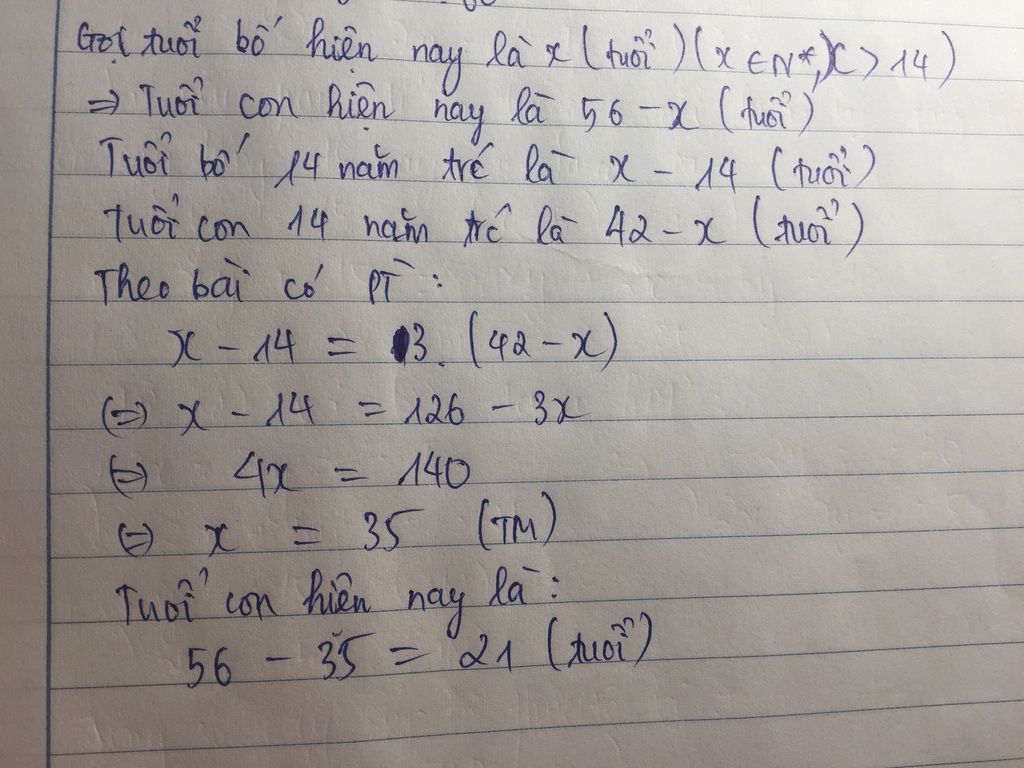 Gọi tuổi bố hiện nay là x (tuổi) (x ∈ N*, x > 14)
⇒ Tuổi con hiện nay là 56 - x (tuổi)
Tuổi bố 14 năm trc là x - 14 (tuổi)
Tuổi con 14 năm trc là 42 - x (tuổi)
Theo bài có PT:
x - 14 = 3. (42 - x)
(=) x - 14 = 126 - 3x
(=) 4x = 140
(=) x = 35 (TM)
Tuổi con hiện nay là:
56 - 35 = 21 (tuổi)